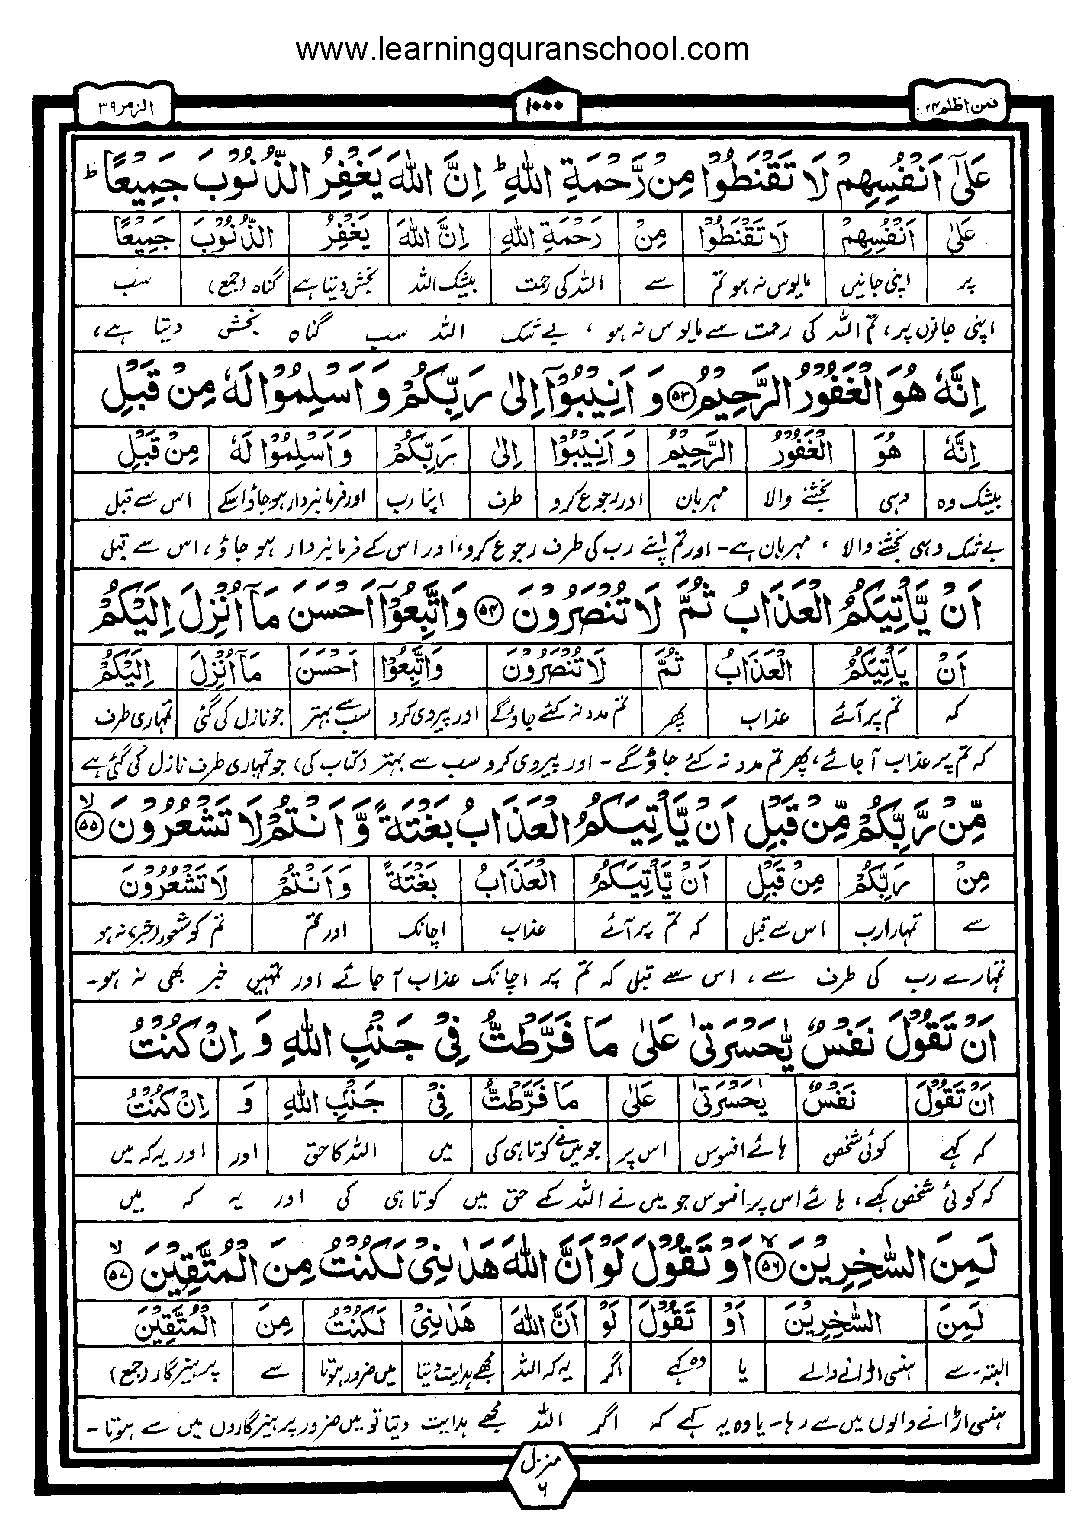 www.learningquranschool.com
الزمر ۳۹
۱۰۰۰
فمن اظلم ۲۴
عَلٰۤى اَنْفُسِهِمْ لَا تَقْنَطُوْا مِنْ رَّحْمَةِ اللّٰهِ ؕ اِنَّ اللّٰهَ يَغْفِرُ الذُّنُوْبَ جَمِيْعًا ؕ
عَلٰى اَنْفُسِهِمْ لَا تَقْنَطُوْا مِنْ رَحْمَةِ اللّٰهِ اِنَّ اللّٰهَ يَغْفِرُ الذُّنُوْبَ جَمِيْعًا
پر اپنی جانیں مایوس نہ ہو تم سے اللہ کی رحمت بیشک اللہ بخش دیتا ہے گناہ (جمع) سب
اپنی جانوں پر، تم اللہ کی رحمت سے مایوس نہ ہو، بے شک اللہ سب گناہ بخش دیتا ہے،
اِنَّهٗ هُوَ الْغَفُوْرُ الرَّحِيْمُ ﴿۵۳﴾ وَ اَنِيْبُوْۤا اِلٰى رَبِّكُمْ وَ اَسْلِمُوْا لَهٗ مِنْ قَبْلِ
اِنَّهٗ هُوَ الْغَفُوْرُ الرَّحِيْمُ وَ اَنِيْبُوْا اِلٰى رَبِّكُمْ وَ اَسْلِمُوْا لَهٗ مِنْ قَبْلِ
بیشک وہ وہی بخشنے والا مہربان اور رجوع کرو طرف اپنا رب اور فرمانبردار ہو جاؤ اسکے اس سے قبل
بے شک وہی بخشنے والا، مہربان ہے۔ اور تم اپنے رب کی طرف رجوع کرو، اور اس کے فرمانبردار ہو جاؤ، اس سے قبل
اَنْ يَّاْتِيَكُمُ الْعَذَابُ ثُمَّ لَا تُنْصَرُوْنَ ﴿۵۴﴾ وَاتَّبِعُوْۤا اَحْسَنَ مَاۤ اُنْزِلَ اِلَيْكُمْ
اَنْ يَاْتِيَكُمُ الْعَذَابُ ثُمَّ لَا تُنْصَرُوْنَ وَاتَّبِعُوْا اَحْسَنَ مَاۤ اُنْزِلَ اِلَيْكُمْ
کہ تم پر آئے عذاب پھر تم مدد نہ کئے جاؤ گے اور پیروی کرو سب سے بہتر جو نازل کی گئی تمہاری طرف
کہ تم پر عذاب آ جائے، پھر تم مدد نہ کئے جاؤ گے۔ اور پیروی کرو سب سے بہتر (کتاب کی) جو تمہاری طرف نازل کی گئی ہے
مِّنْ رَّبِّكُمْ مِّنْ قَبْلِ اَنْ يَّاْتِيَكُمُ الْعَذَابُ بَغْتَةً وَّ اَنْتُمْ لَا تَشْعُرُوْنَ ﴿۵۵﴾ ۙ
مِنْ رَبِّكُمْ مِنْ قَبْلِ اَنْ يَّاْتِيَكُمُ الْعَذَابُ بَغْتَةً وَ اَنْتُمْ لَا تَشْعُرُوْنَ
سے تمہارا رب اس سے قبل کہ تم پر آئے عذاب اچانک اور تم تم کو شعور (خبر) نہ ہو
تمہارے رب کی طرف سے، اس سے قبل کہ تم پر اچانک عذاب آ جائے اور تمہیں خبر بھی نہ ہو۔
اَنْ تَقُوْلَ نَفْسٌ يّٰحَسْرَتٰى عَلٰى مَا فَرَّطْتُّ فِيْ جَنْۢبِ اللّٰهِ وَ اِنْ كُنْتُ
اَنْ تَقُوْلَ نَفْسٌ يٰحَسْرَتٰى عَلٰى مَا فَرَّطْتُّ فِيْ جَنْۢبِ اللّٰهِ وَ اِنْ كُنْتُ
کہ کہے کوئی شخص ہائے افسوس اس پر جو میں نے کوتاہی کی میں اللہ کا حق اور اور یہ کہ میں
کہ کوئی شخص کہے، ہائے اس پر افسوس جو میں نے اللہ کے حق میں کوتاہی کی اور یہ کہ میں
لَمِنَ السّٰخِرِيْنَ ﴿۵۶﴾ ۙ اَوْ تَقُوْلَ لَوْ اَنَّ اللّٰهَ هَدٰىنِيْ لَكُنْتُ مِنَ الْمُتَّقِيْنَ ﴿۵۷﴾ ۙ
لَمِنَ السّٰخِرِيْنَ اَوْ تَقُوْلَ لَوْ اَنَّ اللّٰهَ هَدٰىنِيْ لَكُنْتُ مِنَ الْمُتَّقِيْنَ
البتہ۔ سے ہنسی اڑانے والے یا وہ کہے اگر یہ کہ اللہ مجھے ہدایت دیتا میں ضرور ہوتا سے پرہیزگار (جمع)
ہنسی اڑانے والوں میں سے رہا۔ یا وہ یہ کہے کہ اگر اللہ مجھے ہدایت دیتا تو میں ضرور پرہیزگاروں میں سے ہوتا۔
منزل ۶